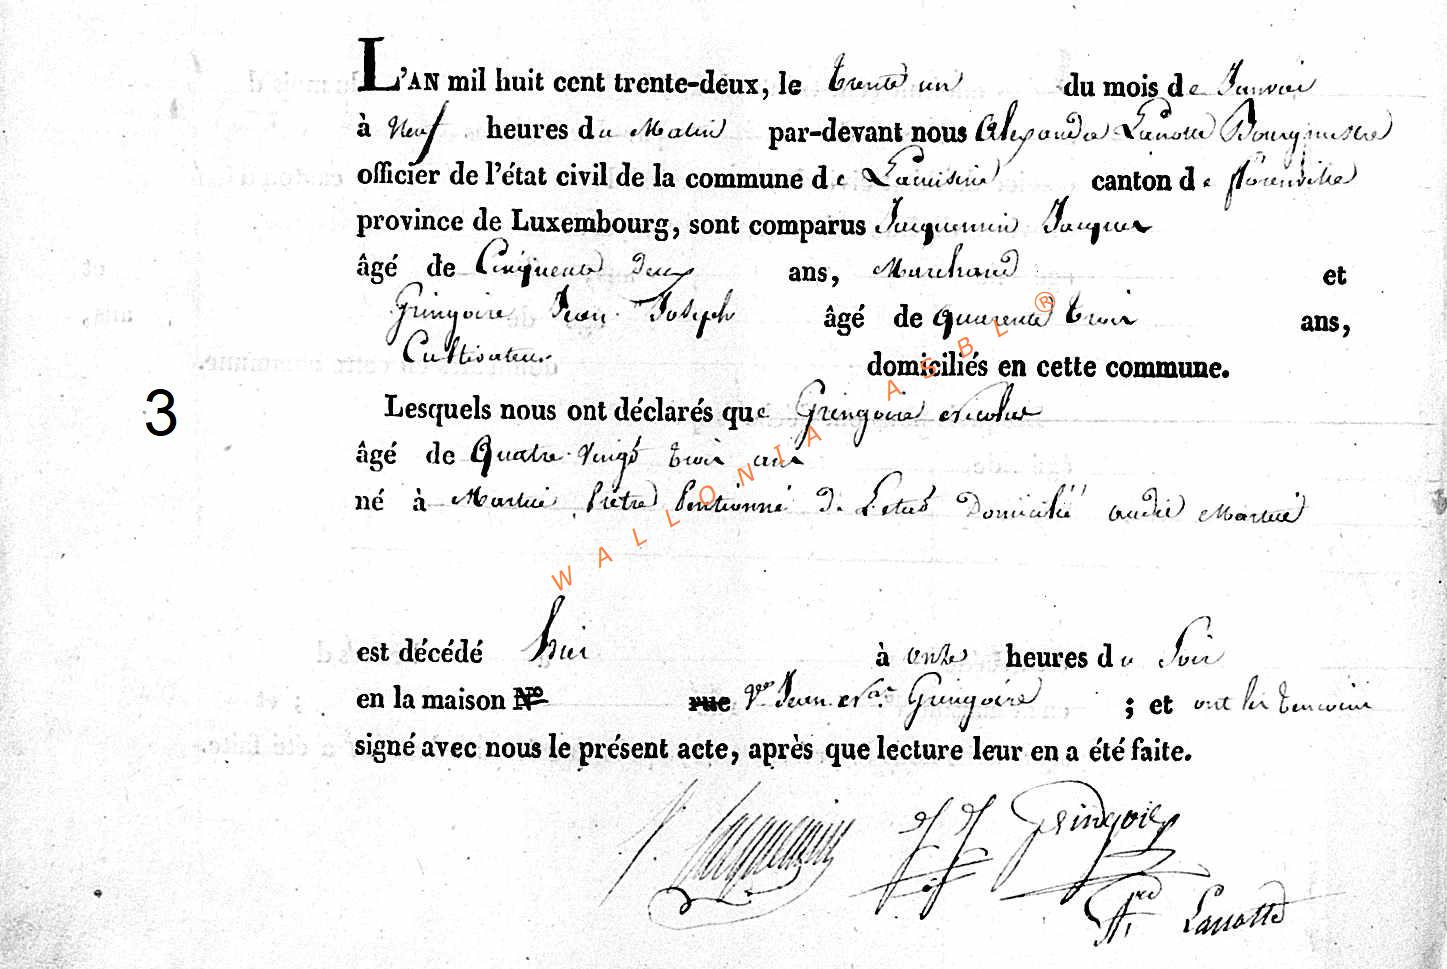 L'AN mil huit cent trente-deux, le trente un du mois de Janvier
à Neuf heures du Matin par-devant nous Alexandre Lanotte Bourgmestre
officier de l'état civil de la commune de canton de florenville
province de Luxembourg, sont comparus Jacquemin Jacques
âgé de Cinquente deux ans, Marchand et
Gringoire Jean Joseph âgé de quarente trois ans,
Cultivateur domiciliés en cette commune.
3
Lesquels nous ont déclarés que Gringoire Nicolas
âgé de Quatre vingt trois ans
né à Martué Prêtre Pentionné de Letat Domicilié audit Martué
est décédé hier à onze heures du Soir
en la maison N.º rue Jean Gringoire ; et ont les temoins
signé avec nous le présent acte, après que lecture leur en a été faite.
J. Jacquemin J J Gringoire
Lanotte
WALLONIA ASBL ®